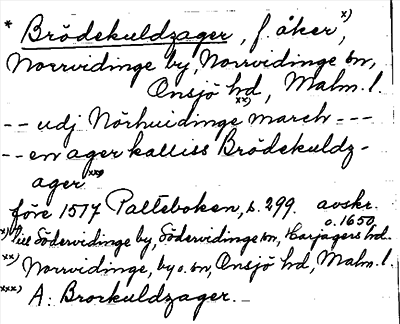 * Brödekuldzager, f. åker x),
Norrvidinge by, Norrvidinge sn,
Onsjö hd, Malm. l.
-- udj Nörhuidinge xx) march ---
-- en ager kalliss Brödekuldz-
ager xxx)
före 1517 Palteboken, s. 299. avskr.
o. 1650.
x) Södervidinge by, Södervidinge sn, Harjagers hd.
xx) Norrvidinge, by o. sn, Onsjö hd, Malm. l.
xxx) A: Brorkuldzager.